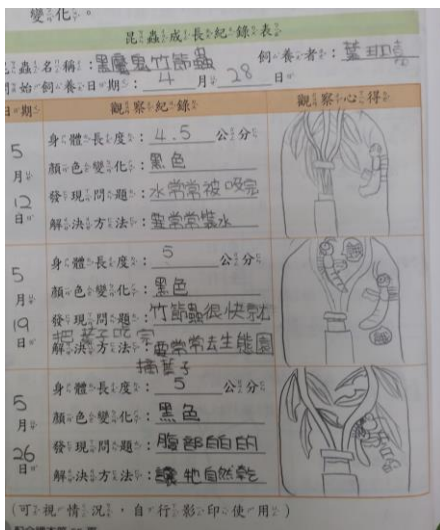 變化。
昆蟲成長紀錄表
昆蟲名稱：黑魔鬼竹節蟲 飼養者：葉玥
開始飼養日期：4月28日
日期 觀察紀錄 觀察心得
5月12日
身體長度：4.5公分
顏色變化：黑色
發現問題：水常常被吸完
解決方法：要常常裝水
5月19日
身體長度：5公分
顏色變化：黑色
發現問題：竹節蟲很快就
把葉子吃完
解決方法：要常常去生態園
摘葉子
5月26日
身體長度：5公分
顏色變化：黑色
發現問題：腹部白白的
解決方法：讓牠自然乾
（可視情況，自行影印使用）